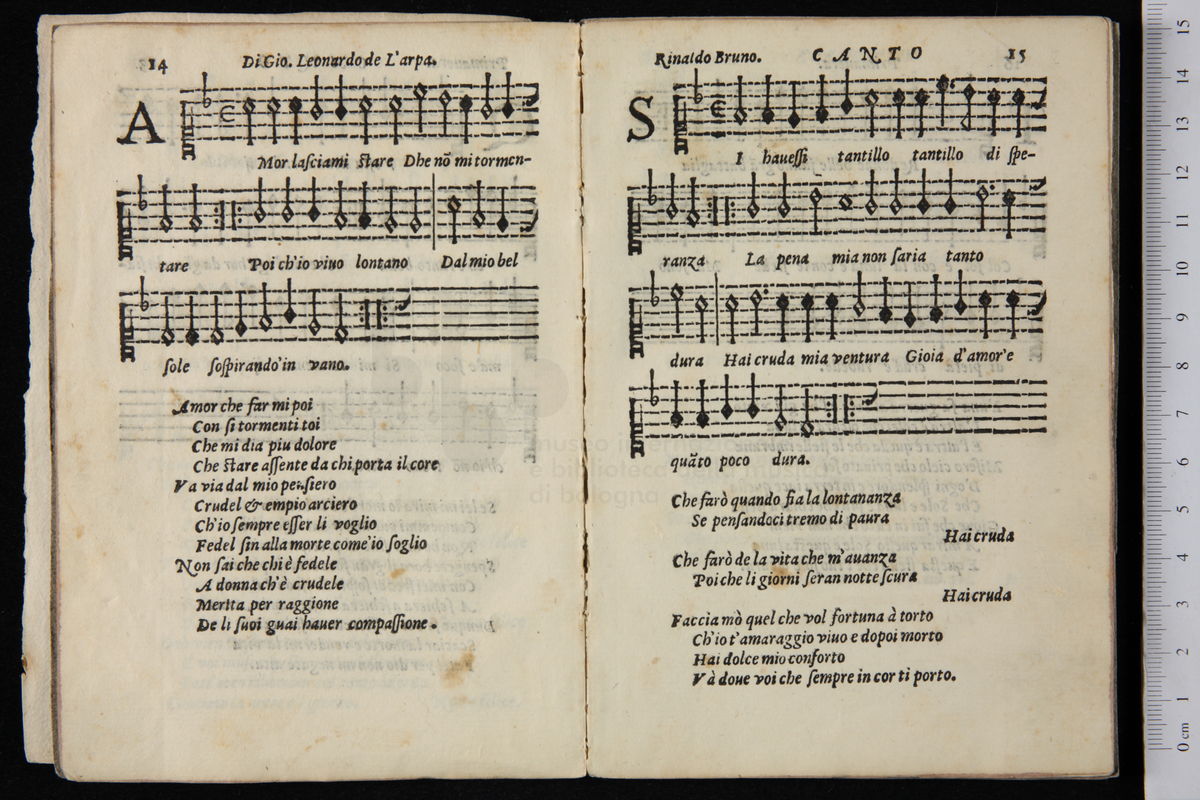 14
Di Gio. Leonardo de L'arpa.
A
Mor laſciami ſtare Dhe nõ mi tormen-
tare Poi ch'io viuo lontano Dal mio bel
ſole ſoſpirando'in vano.
Amor che far mi poi
Con ſi tormenti toi
Che mi dia piu dolore
Che ſtare aſſente da chi porta il core
Va via dal mio penſiero
Crudel & empio arciero
Ch'io ſempre eſſer li voglio
Fedel ſin alla morte come'io ſoglio
Non ſai che chi è fedele
A donna ch'è crudele
Merita per raggione
De li ſuoi guai hauer compaſſione.
Rinaldo Bruno. CANTO 15
S
I haueſſi tantillo tantillo di ſpe-
ranza La pena mia non ſaria tanto
dura Hai cruda mia ventura Gioia d'amor'e
quãto poco dura.
Che farò quando fia la lontananza
Se penſandoci tremo di paura
Hai cruda
Che farò de la vita che m'auanza
Poi che li giorni ſeran notte ſcura
Hai cruda
Faccia mò quel che vol fortuna à torto
Ch'io t'amaraggio viuo e dopoi morto
Hai dolce mio conforto
Và doue voi che ſempre in cor ti porto.
museo
e biblioteca
di bologna
0 cm 1 2 3 4 5 6 7 8 9 10 11 12 13 14 15